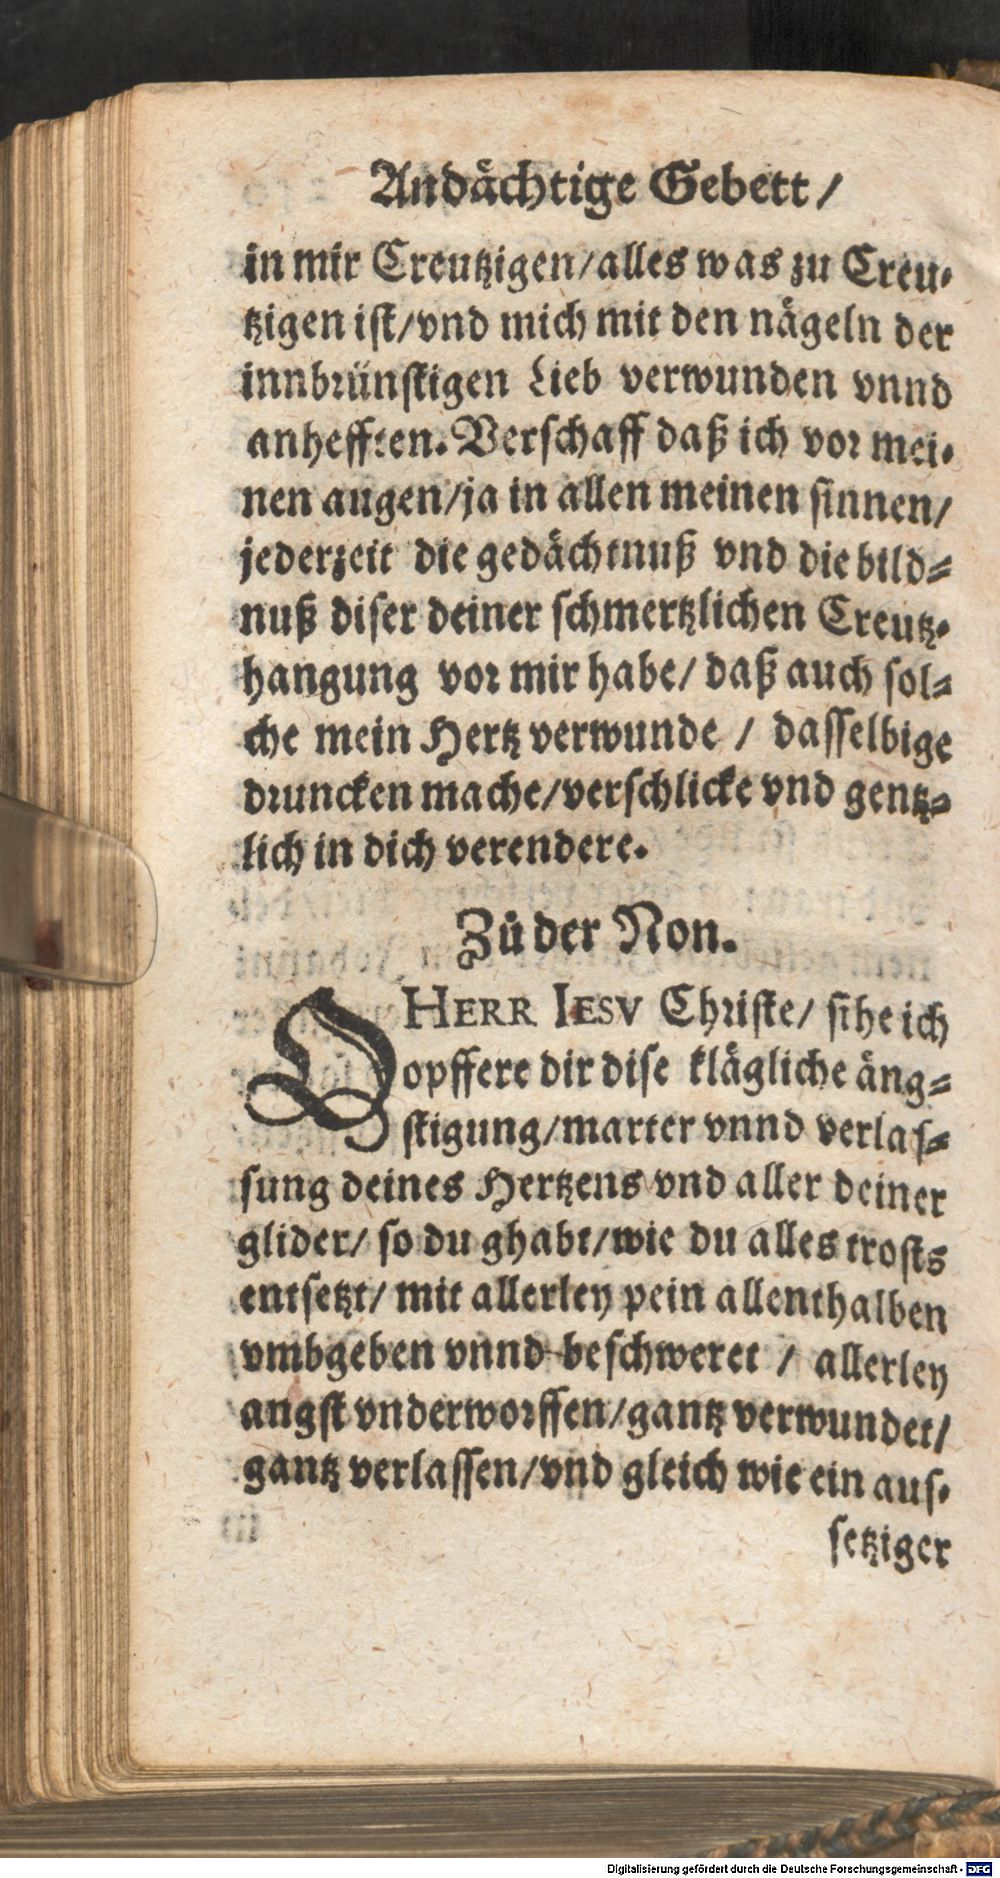 Andächtige Gebett/
in mir Creutzigen/alles was zu Creu-
tzigen ist/vnd mich mit den nägeln der
innbrünstigen Lieb verwunden vnnd
anhefften. Verschaff daß ich vor mei-
nen augen/ja in allen meinen sinnen/
jederzeit die gedächtnuß vnd die bild-
nuß diser deiner schmertzlichen Creutz-
hangung vor mir habe/ daß auch sol-
che mein Hertz verwunde / dasselbige
druncken mache/verschlicke vnd gentz-
lich in dich verendere.
Zů der Non.
O HERR IESV Christe/ sihe ich
opffere dir dise klägliche äng-
stigung/marter vnnd verlas-
sung deines Hertzens vnd aller deiner
glider/ so du ghabt/wie du alles trosts
entsetzt/ mit allerley pein allenthalben
vmbgeben vnnd beschweret / allerley
angst vnderworffen/gantz verwundet/
gantz verlassen/vnd gleich wie ein aus-
setziger
Digitalisierung gefördert durch die Deutsche Forschungsgemeinschaft - DFG